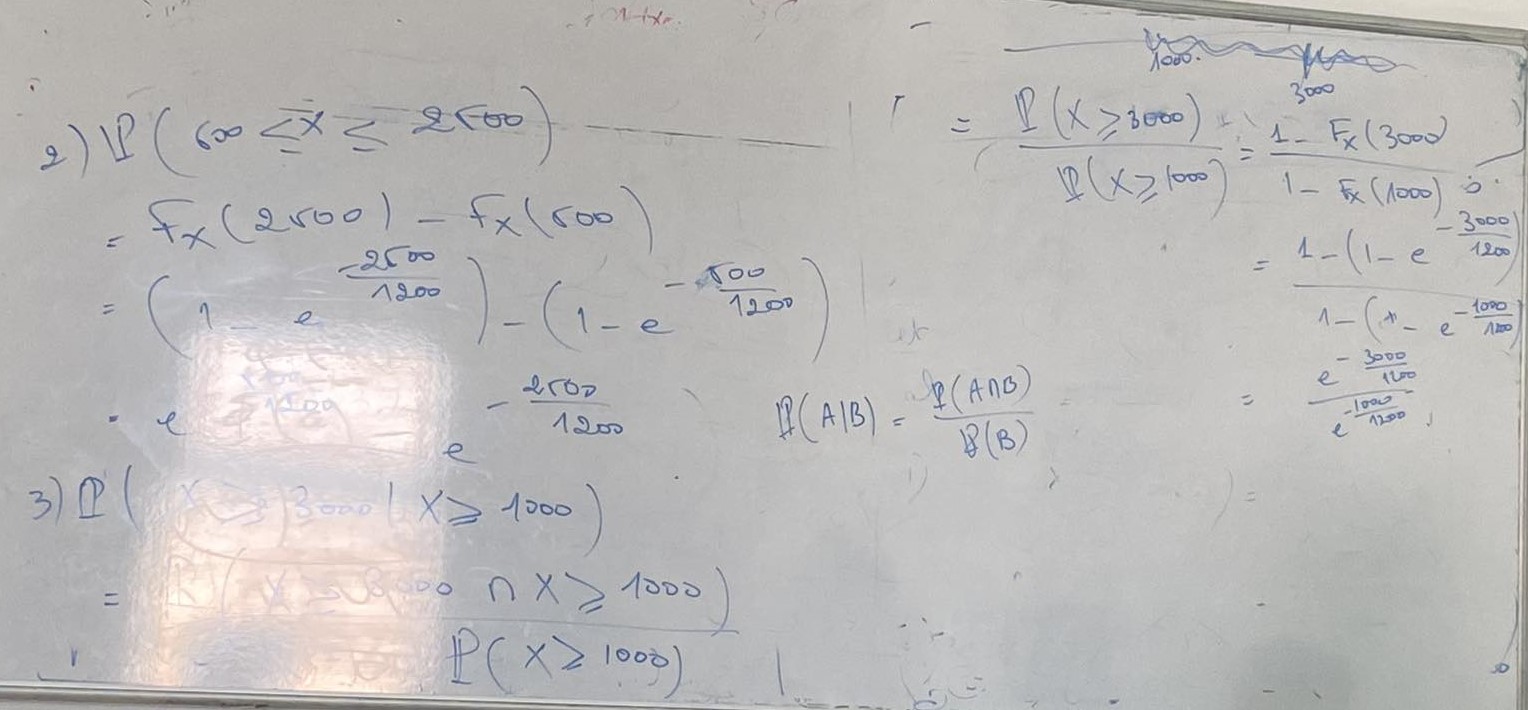 2) ℙ(500 ≤ X ≤ 2500)
= F_X(2500) - F_X(500)
= (1 - e^{-2500/1200}) - (1 - e^{-500/1200})
= e e^{-2500/1200}
3) ℙ(X ≥ 3000 | X ≥ 1000)
= ℙ(X ≥ 3000 ∩ X ≥ 1000) / ℙ(X ≥ 1000)
ℙ(A|B) = ℙ(A∩B) / ℙ(B)
1000
3000
= ℙ(X ≥ 3000) / ℙ(X ≥ 1000) = 1 - F_X(3000) / 1 - F_X(1000)
= 1 - (1 - e^{-3000/1200}) / 1 - (1 - e^{-1000/1200})
= e^{-3000/1200} / e^{-1000/1200}